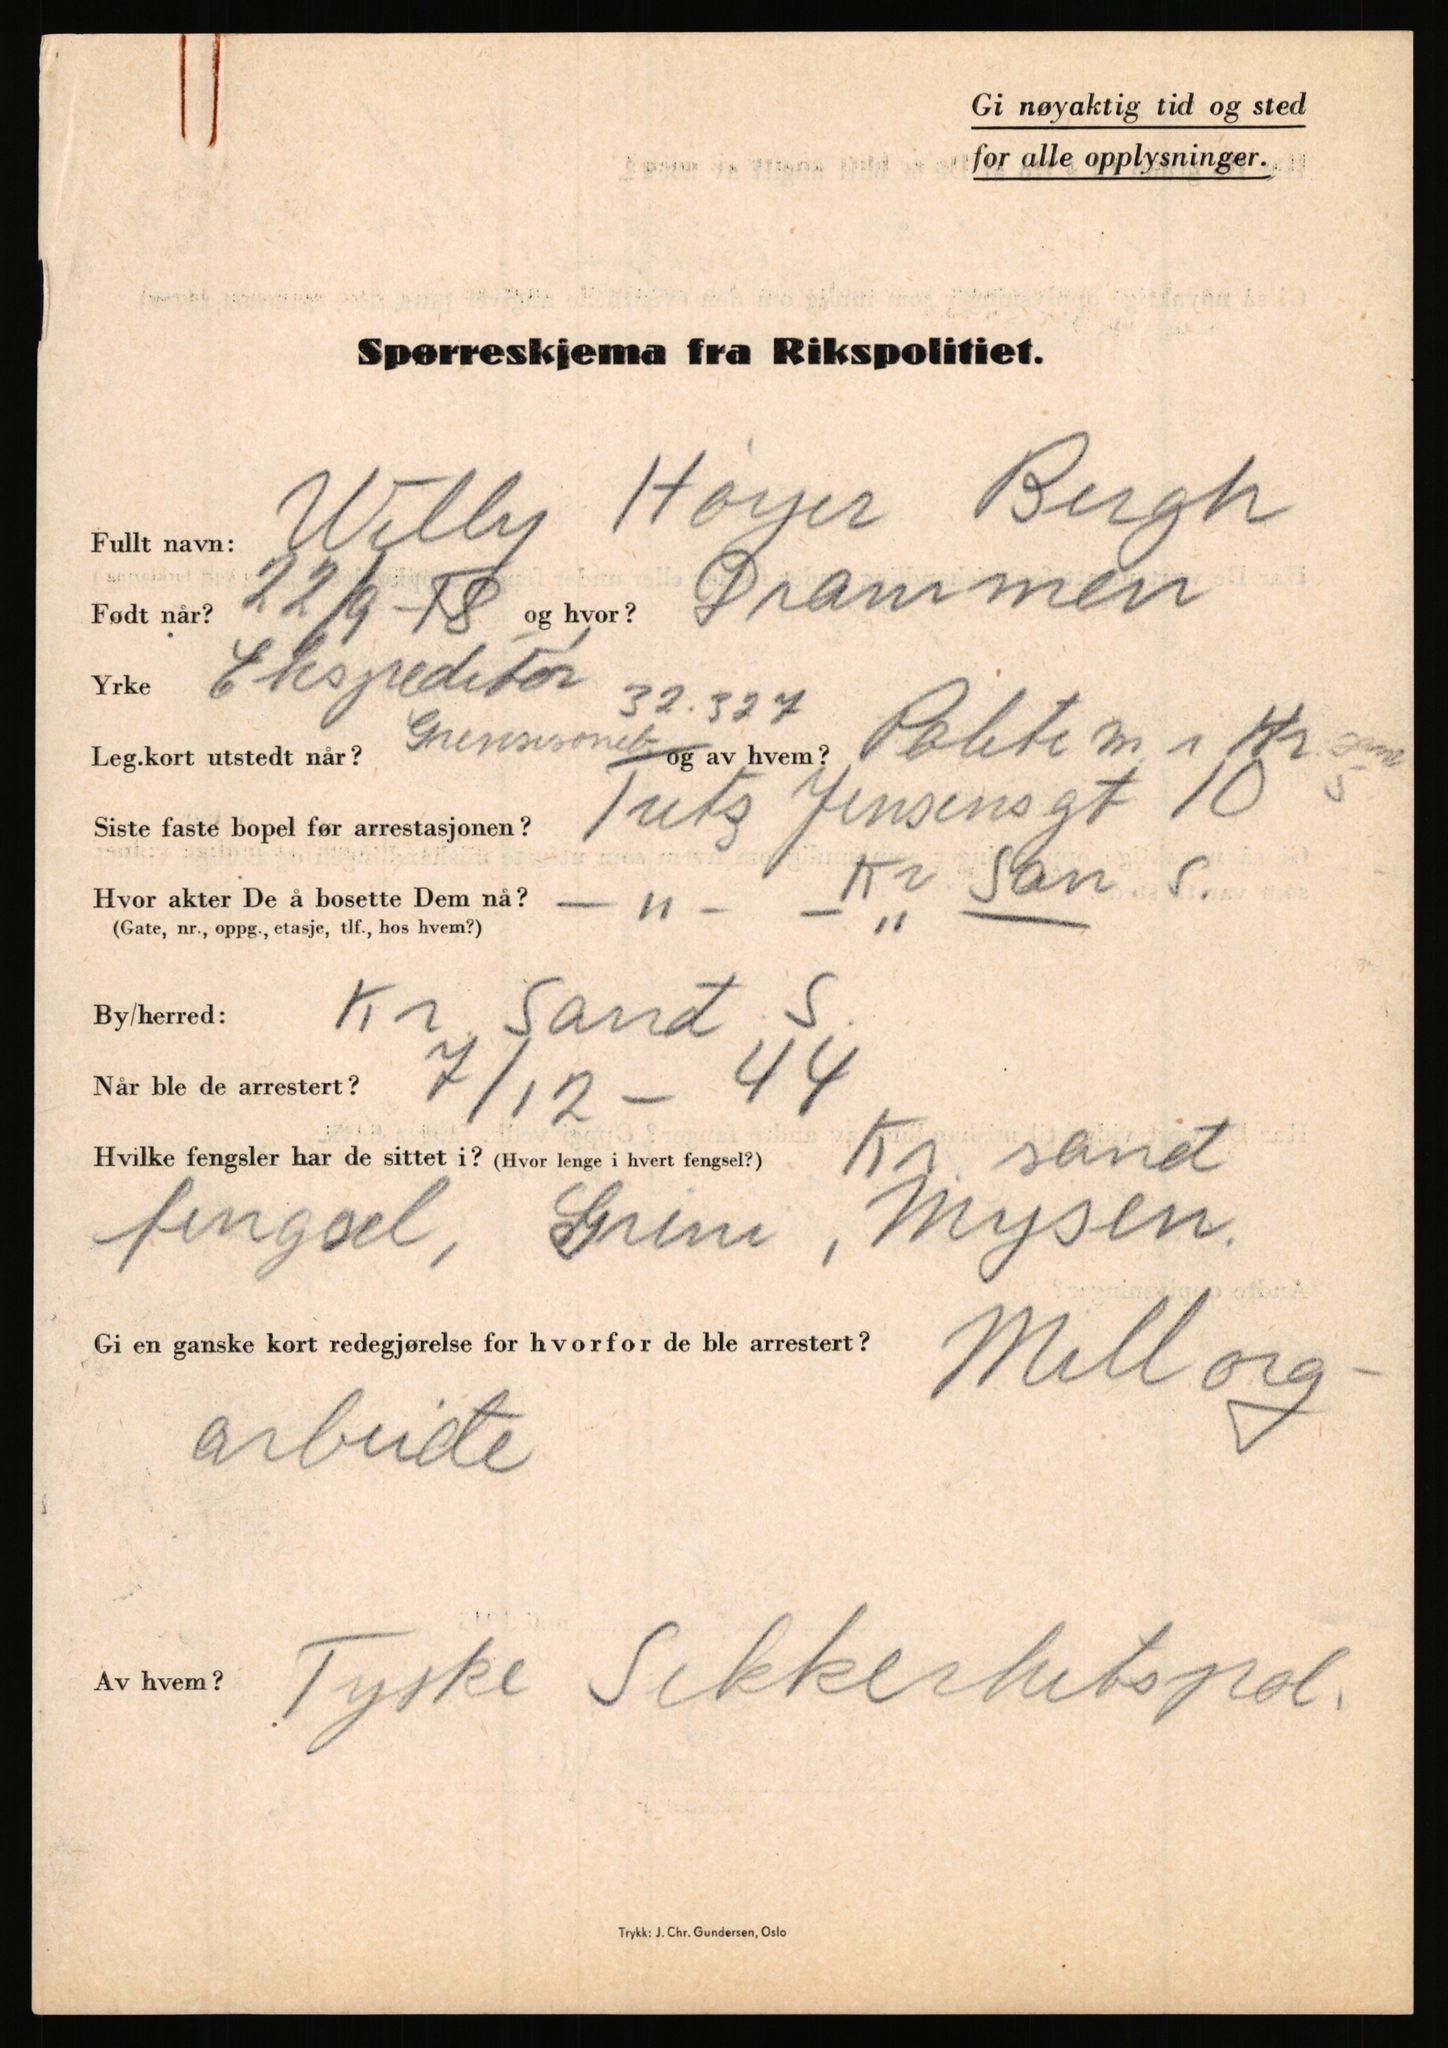 Gi nøyaktig tid og sted
for alle opplysninger.
Spørreskjema fra Rikspolitiet.
Fullt navn: Willy Høyer Bergh
Født når? 22/9-18 og hvor? Drammen
Yrke Ekspeditør
32.327
Leg.kort utstedt når? Grensesoneb og av hvem? Politi m i Kr san S
Siste faste bopel før arrestasjonen? Jensensgt 10
Hvor akter De å bosette Dem nå? — " - Kr San S.
(Gate, nr., oppg., etasje, tlf., hos hvem?) — " —
By/herred: Kr. Sand S.
Når ble de arrestert? 7/12 - 44
Hvilke fengsler har de sittet i? (Hvor lenge i hvert fengsel?) Kr. sand
fengsel, Grini, Mysen.
Gi en ganske kort redegjørelse for hvorfor de ble arrestert? Mill org-
arbeide
Av hvem? Tyske Sikkerhetspol.
Trykk: J. Chr. Gundersen, Oslo